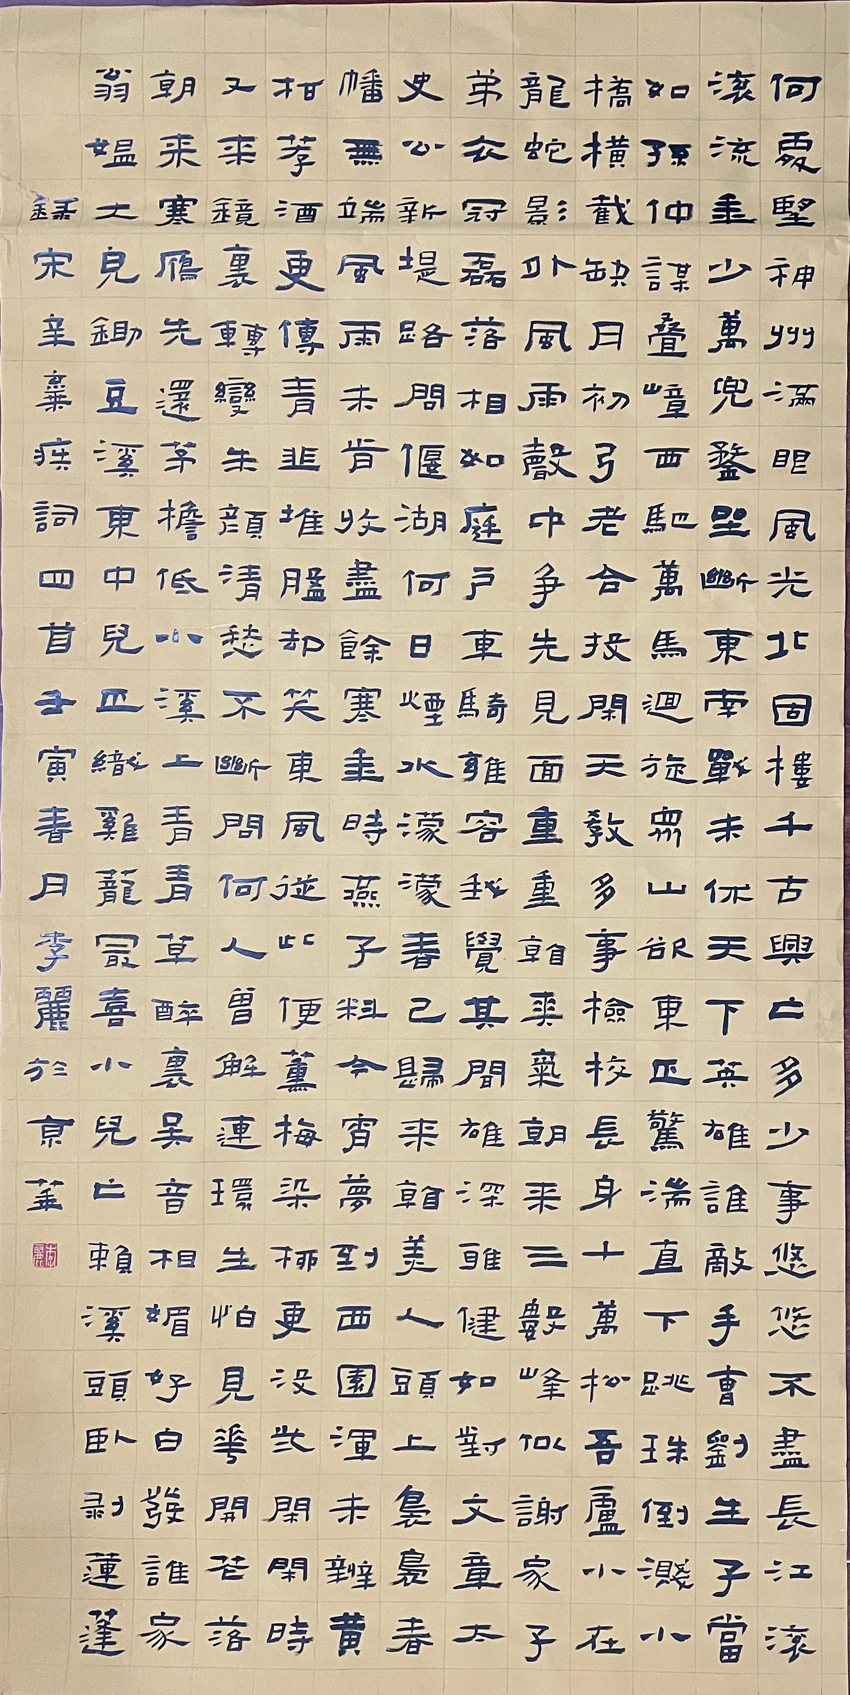 何處望神州滿眼風光北固樓千古興亡多少事悠悠不盡長江滾
滾流年少萬兜鍪坐斷東南戰未休天下英雄誰敵手曹劉生子當
如孫仲謀疊嶂西馳萬馬迴旋眾山欲東正驚湍直下跳珠倒濺小
橋橫截缺月初弓老合投閑天教多事檢校長身十萬松吾廬小在
龍蛇影外風雨聲中爭先見面重重看爽氣朝來三數峰似謝家子
弟衣冠磊落相如庭戶車騎雍容我覺其間雄深雅健如對文章太
史公新堤路問偃湖何日煙水濛濛春已歸來看美人頭上裊裊春
幡無端風雨未肯收盡餘寒年時燕子料今宵夢到西園渾未辦黃
柑荐酒更傳青韭堆盤却笑東風從此便薰梅染柳更没些閑閑時
又來鏡裏轉變朱顏清愁不斷問何人會解連環生怕見花開花落
朝來塞雁先還茅檐低小溪上青青草醉裏吳音相媚好白發誰家
翁媼大兒鋤豆溪東中兒正織雞籠最喜小兒亡賴溪頭臥剥蓮蓬
錄宋辛棄疾詞四首壬寅春月李麗於京華